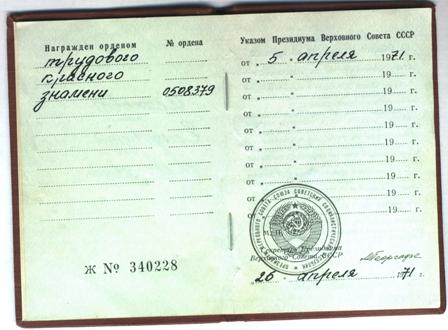 Награжден орденом № ордена
трудового
красного
знамени 0508379
Ж № 340228
Указом Президиума Верховного Совета СССР
от " 5 " апреля 1971 г.
от " " 19 г.
от " " 19 г.
от " " 19 г.
от " " 19 г.
от " " 19 г.
от " " 19 г.
от " " 19 г.
М.П.
Секретарь Президиума
Верховного Совета СССР
" 26 " апреля 1971 г.